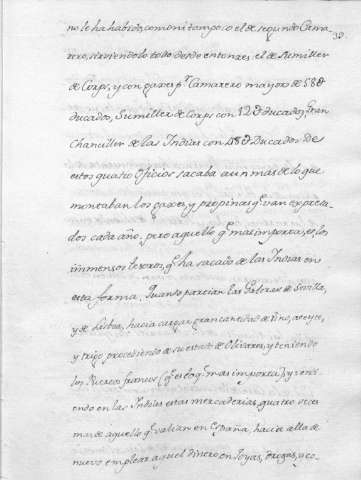 no le ha habido, como ni tampoco el de segundo Cama-
rero, sirviendolo todo desde entonzes, el de Sumiller
de Corps, y con gaxes pr. Camarero mayor de 58
ducados, Sumiller de Corps con 12 ducados, Gran
Chanciller de las Indias con 48 Ducados de
estos quatro Oficios sacaba aun mas de lo que
montaban los gaxes, y propinas q.e van expresa-
dos cada año, pero aquello q.e mas importa, es los
immensos tesoros, q.e ha sacado de las Indias en
esta forma. Quando partian los Galeones de Sevilla,
y de Lisboa, hacia cargar gran cantidad de vino, azeyte,
y trigo procediendo de su estado de Olivares, y teniendo
los francos (q.e es lo q.e mas importa) y veni-
endo en las Indias estas mercaderias, quatro veces
mas de aquello q.e valian en España, hacia alla de
nuevo emplear aquel dinero en Joyas, drogas, y co-